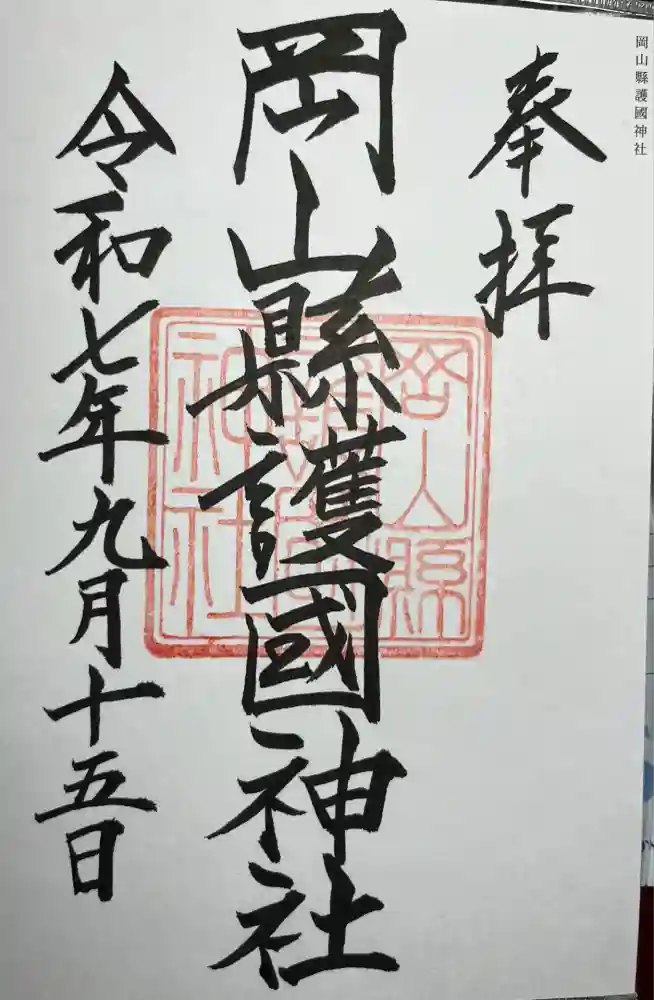 岡山縣護國神社
奉拝
岡山縣護國神社
令和七年九月十五日
岡山縣
護國
神社